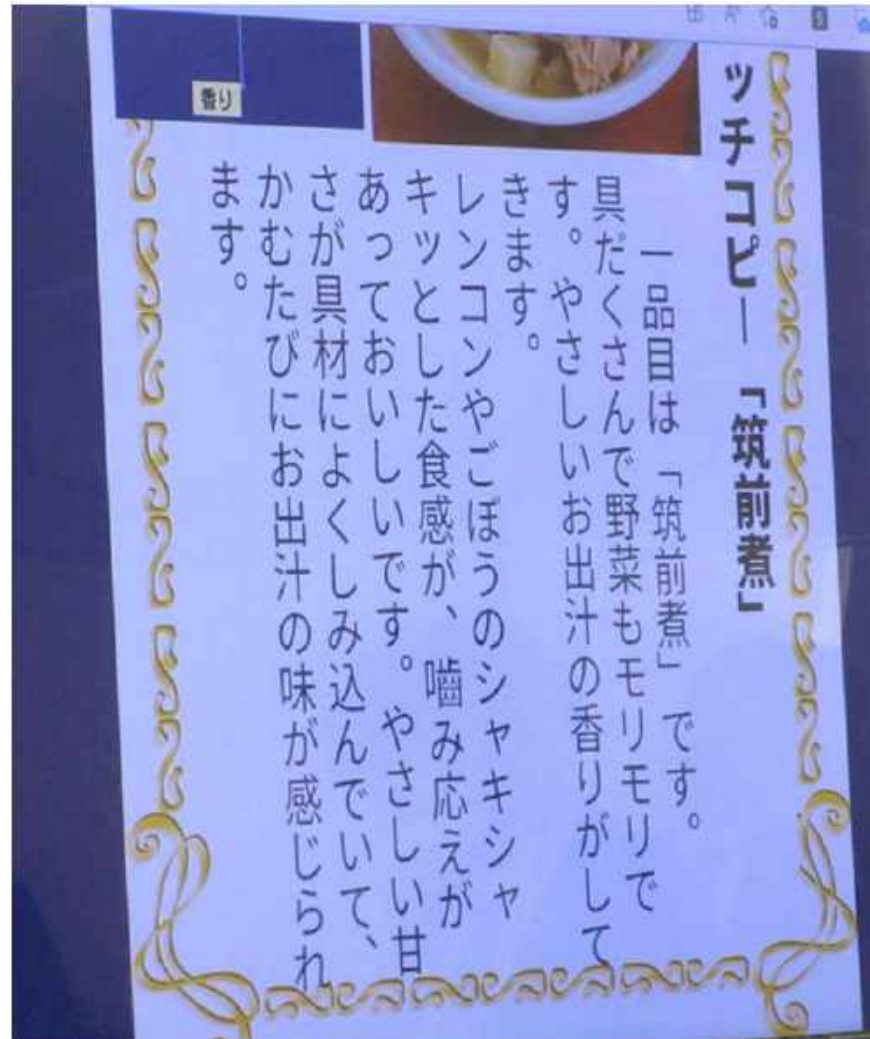 ッチコピー 「筑前煮」
一品目は「筑前煮」です。
具だくさんで野菜もモリモリで
す。やさしいお出汁の香りがして
きます。
レンコンやごぼうのシャキシャ
キッとした食感が、噛み応えが
あっておいしいです。やさしい甘
さが具材によくしみ込んでいて、
かむたびにお出汁の味が感じられ
ます。
香り